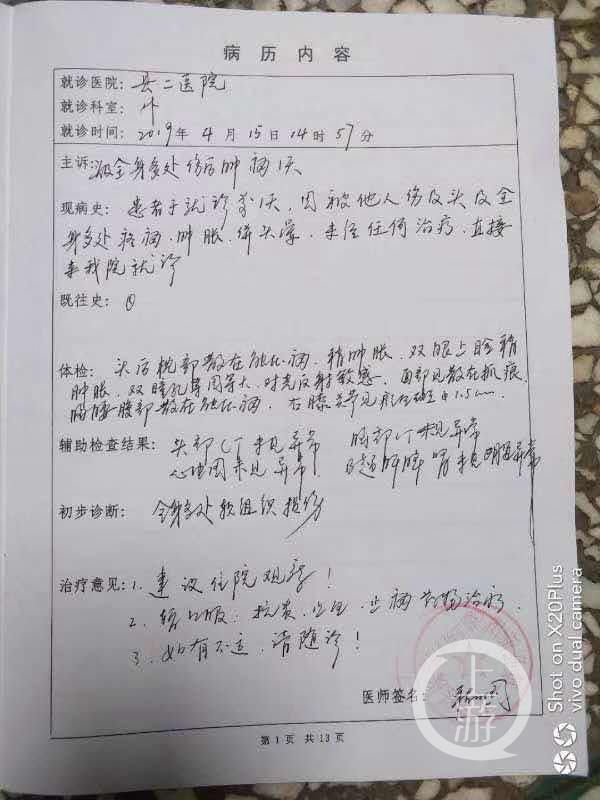 病 历 内 容
就诊医院: 县二医院
就诊科室: 外
就诊时间: 2019年 4 月 15日 14时 57分
主诉: 被全身多处伤后肿痛1天
现病史: 患者于就诊前1天,因被他人伤及头及全
身多处疼痛,肿胀,伴头晕,未经任何治疗,直接
来我院就诊
既往史:
体检: 头后枕部散在触压痛,稍肿胀,双眼上睑稍
肿胀,双瞳孔等圆等大,对光反射敏感,面部见散在抓痕
胸腰腹部散在触压痛,右膝关节见 1.5cm
辅助检查结果: 头部CT未见异常 胸部CT未见异常
心电图未见异常 B超肝脾 肾未见明显异常
初步诊断: 全身多处软组织损伤
治疗意见: 1、建议住院观察!
2、口服:抗炎、止痛 药物治疗.
3、如有不适,请随诊!
医师签名:
第 1 页 共 13 页
上游
Shot on X20Plus
vivo dual camera